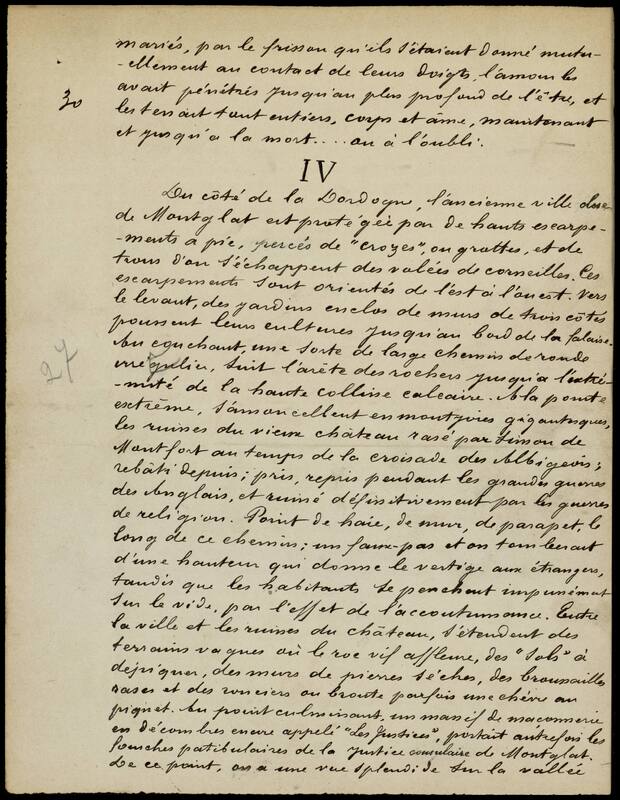 mariés, par le frisson qu'ils s'étaient donné mutu-
-ellement au contact de leurs doigts, l'amour les
avait pénétrés jusqu'au plus profond de l'être, et
30
les tenait tout entiers, corps et âme, maintenant
et jusqu'à la mort.... ou à l'oubli.
IV
Du côté de la Dordogne, l'ancienne ville close
de Montglat est protégée par de hauts escarpe-
-ments à pic, percés de "crozes", ou grottes, et de
trous d'où s'échappent des volées de corneilles. Ces
escarpements sont orientés de l'est à l'ouest. Vers
le levant, des jardins enclos de murs de trois côtés
poussent leurs cultures jusqu'au bord de la falaise.
Au couchant, une sorte de large chemin de ronde
27
irrégulier, suit l'arête des rochers jusqu'à l'extré-
-mité de la haute colline calcaire. A la pointe
extrême, s'amoncellent en montjoires gigantesques,
les ruines du vieux château rasé par Simon de
Montfort au temps de la croisade des Albigeois;
rebâti depuis; pris, repris pendant les grandes guerres
des Anglais, et ruiné définitivement par les guerres
de religion. Point de haie, de mur, de parapet, le
long de ce chemin; un faux-pas et on tomberait
d'une hauteur qui donne le vertige aux étrangers,
tandis que les habitants se penchent impunément
sur le vide, par l'effet de l'accoutumance. Entre
la ville et les ruines du château, s'étendent des
terrains vagues où le roc vif affleure, des "sols" à
dépiquer, des murs de pierres sèches, des broussailles
rases et des ronciers où broute parfois une chèvre au
piquet. Au point culminant, un massif de maçonnerie
en décombres encore appelé "Les Justices", portait autrefois les
fourches patibulaires de la justice consulaire de Montglat.
De ce point, on a une vue splendide sur la vallée